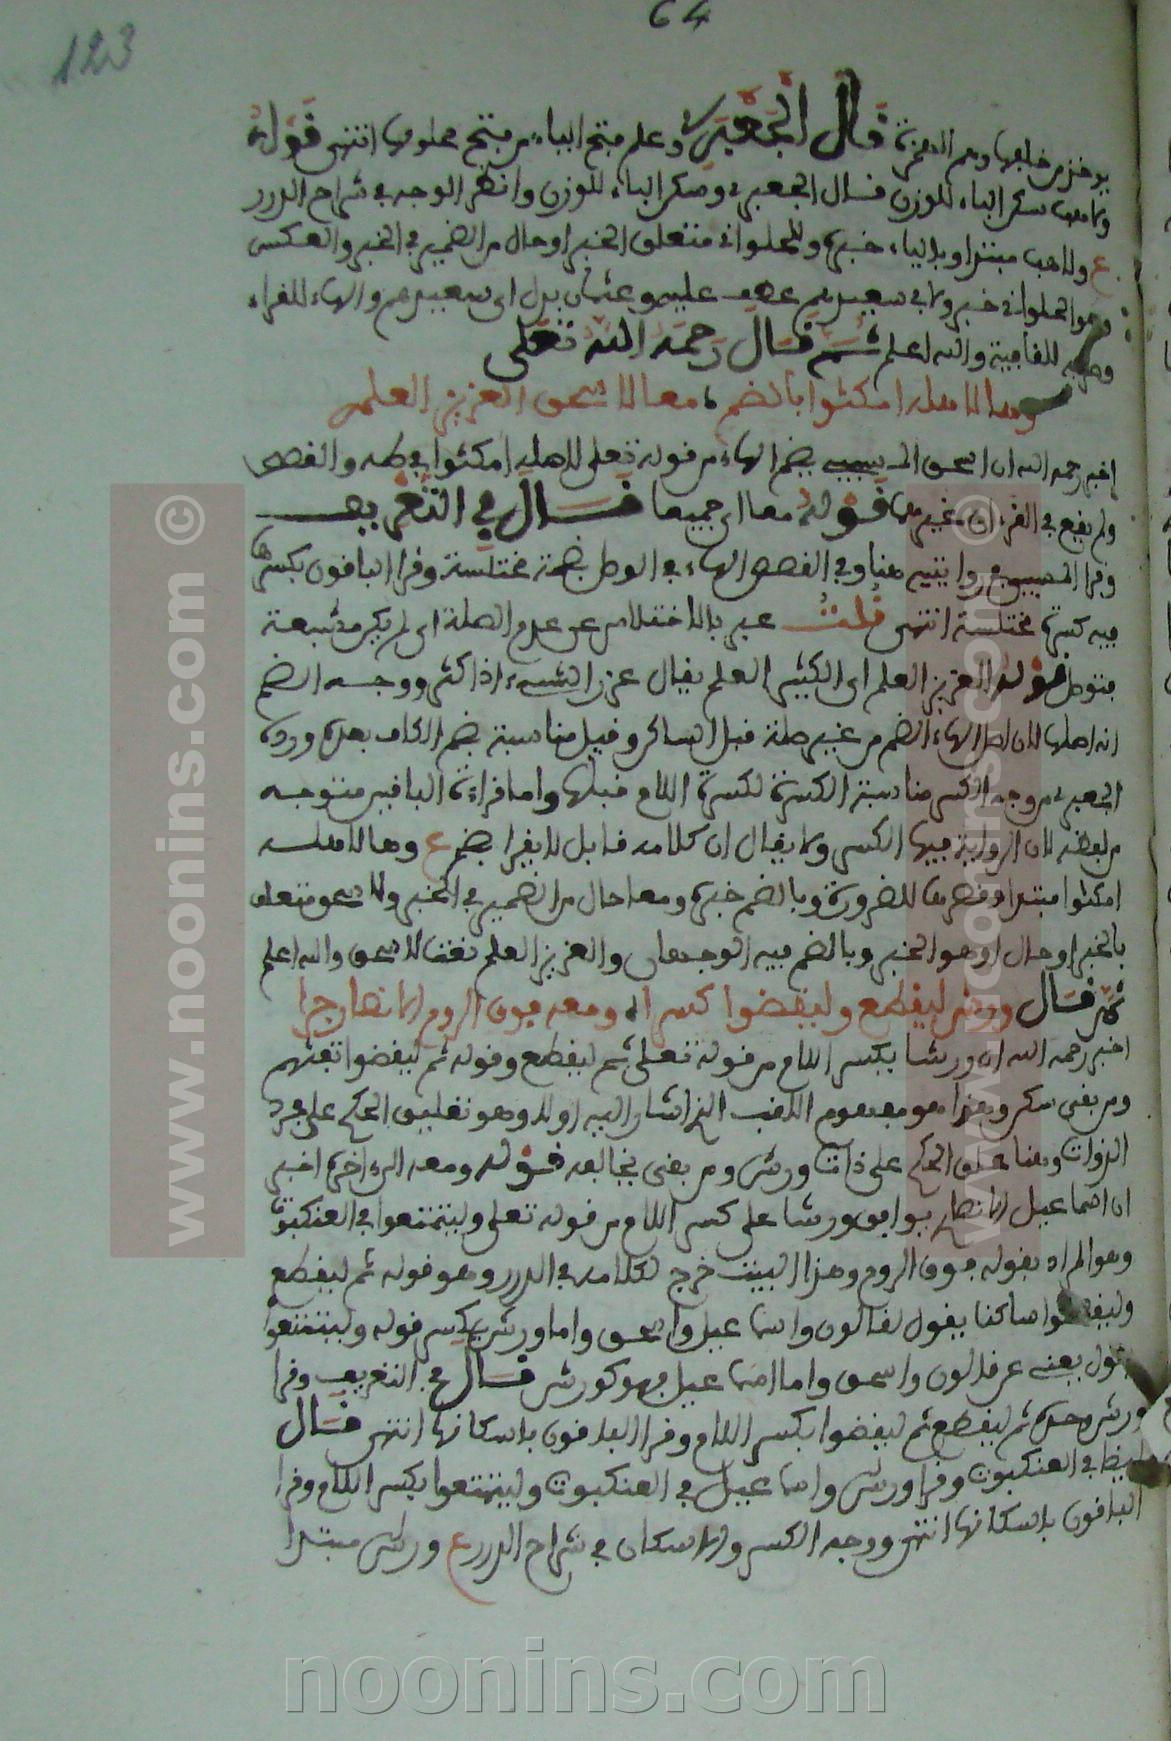 64
123
قال الجعبري وعلم فتح الياء من فتح محلوفها انتهى قوله
سكن الياء للوزن قال الجعبري وسكن الياء للوزن وانظر الوجه في شراح الدرر
ع ولاهب مبتدا وبالياء خبره وللحلواني متعلق الخبر او حال من الضمير في الخبر والعكس
وهو الحلواني خبر عطف عليه وعثمان بدل ابي سعيدهم والهاء للقراء
للقافية والله اعلم ثم قال رحمه الله تعلى
امكثوا بالضم معا لاسحق العزيز العلم
اخبر رحمه الله ان اسحق المسيبي بضم الهاء من قوله تعلى لاهله امكثوا في طه والقصص
ولم يقع في القرءان غيرهما قوله معا اي جميعا قال في التعريف
وقرا المسيبي في روايتيه هنا وفي القصص الهاء في الوصل بضمة مختلسة وقرا الباقون بكسرها
فيه كسرة مختلسة انتهى قلت عبر بالاختلاس عن عدم الصلة اي لم يكن مشبعة
فتوصل قوله العزيز العلم اي الكثير العلم يقال عزز الشيء اذا كثر ووجه الضم
انه اصلها لان اصل الهاء الضم من غير صلة قبل الساكن وقيل مناسبة ضم الكاف بعده ورده
الجعبري ووجه الكسر مناسبة الكسرة لكسرة اللام قبلها واما قراءة الباقين فتوجه
من لفظه لان الرواية فيها الكسر ولا يقال ان كلامه قابل لا يقرا بضم ع وها لاهله
امكثوا مبتدا وقصرها للضرورة وبالضم خبره ومعا حال من الضمير في الخبر ولاسحق متعلق
بالخبر او حال او هو الخبر وبالضم فيه الوجهان والعزيز العلم نعت لاسحق والله اعلم
ثم قال وورش ليقطع وليقضوا كسرا ومعه فوق الروم الانصار جرا
اخبر رحمه الله ان ورشا بكسر اللام من قوله تعلى ثم ليقطع وقوله ثم ليقضوا تفثهم
ومن بقي سكن وهذا هو مفهوم اللقب الذي اشار اليه اولا وهو تعليق الحكم على مجرد
الذوات وهنا علق الحكم على ذات ورش ومن بقي يخالفه قوله ومعه الى اخره اخبر
ان اسماعيل الانصاري يوافق ورشا على كسر اللام من قوله تعلى وليتمتعوا في العنكبوت
وهو المراد بقوله فوق الروم وهذا البيت خرج لكلامه في الدرر وهو قوله ثم ليقطع
وليقضوا ساكنا يقول لقالون واسماعيل واسحق واما ورش بكسر قوله وليتمتعوا
يقول يعني عن قالون واسحق واما اسماعيل فهو كورش قال في التعريف وقرا
ورش وحده ثم ليقطع ثم ليقضوا بكسر اللام وقرا الباقون باسكانها انتهى قال
ايضا في العنكبوت وقرا ورش واسماعيل في العنكبوت وليتمتعوا بكسر اللام وقرا
الباقون باسكانها انتهى ووجه الكسر والاسكان في شراح الدرر ع ورش مبتدا
www.noonins.com ©
www.noonins.com ©
noonins.com